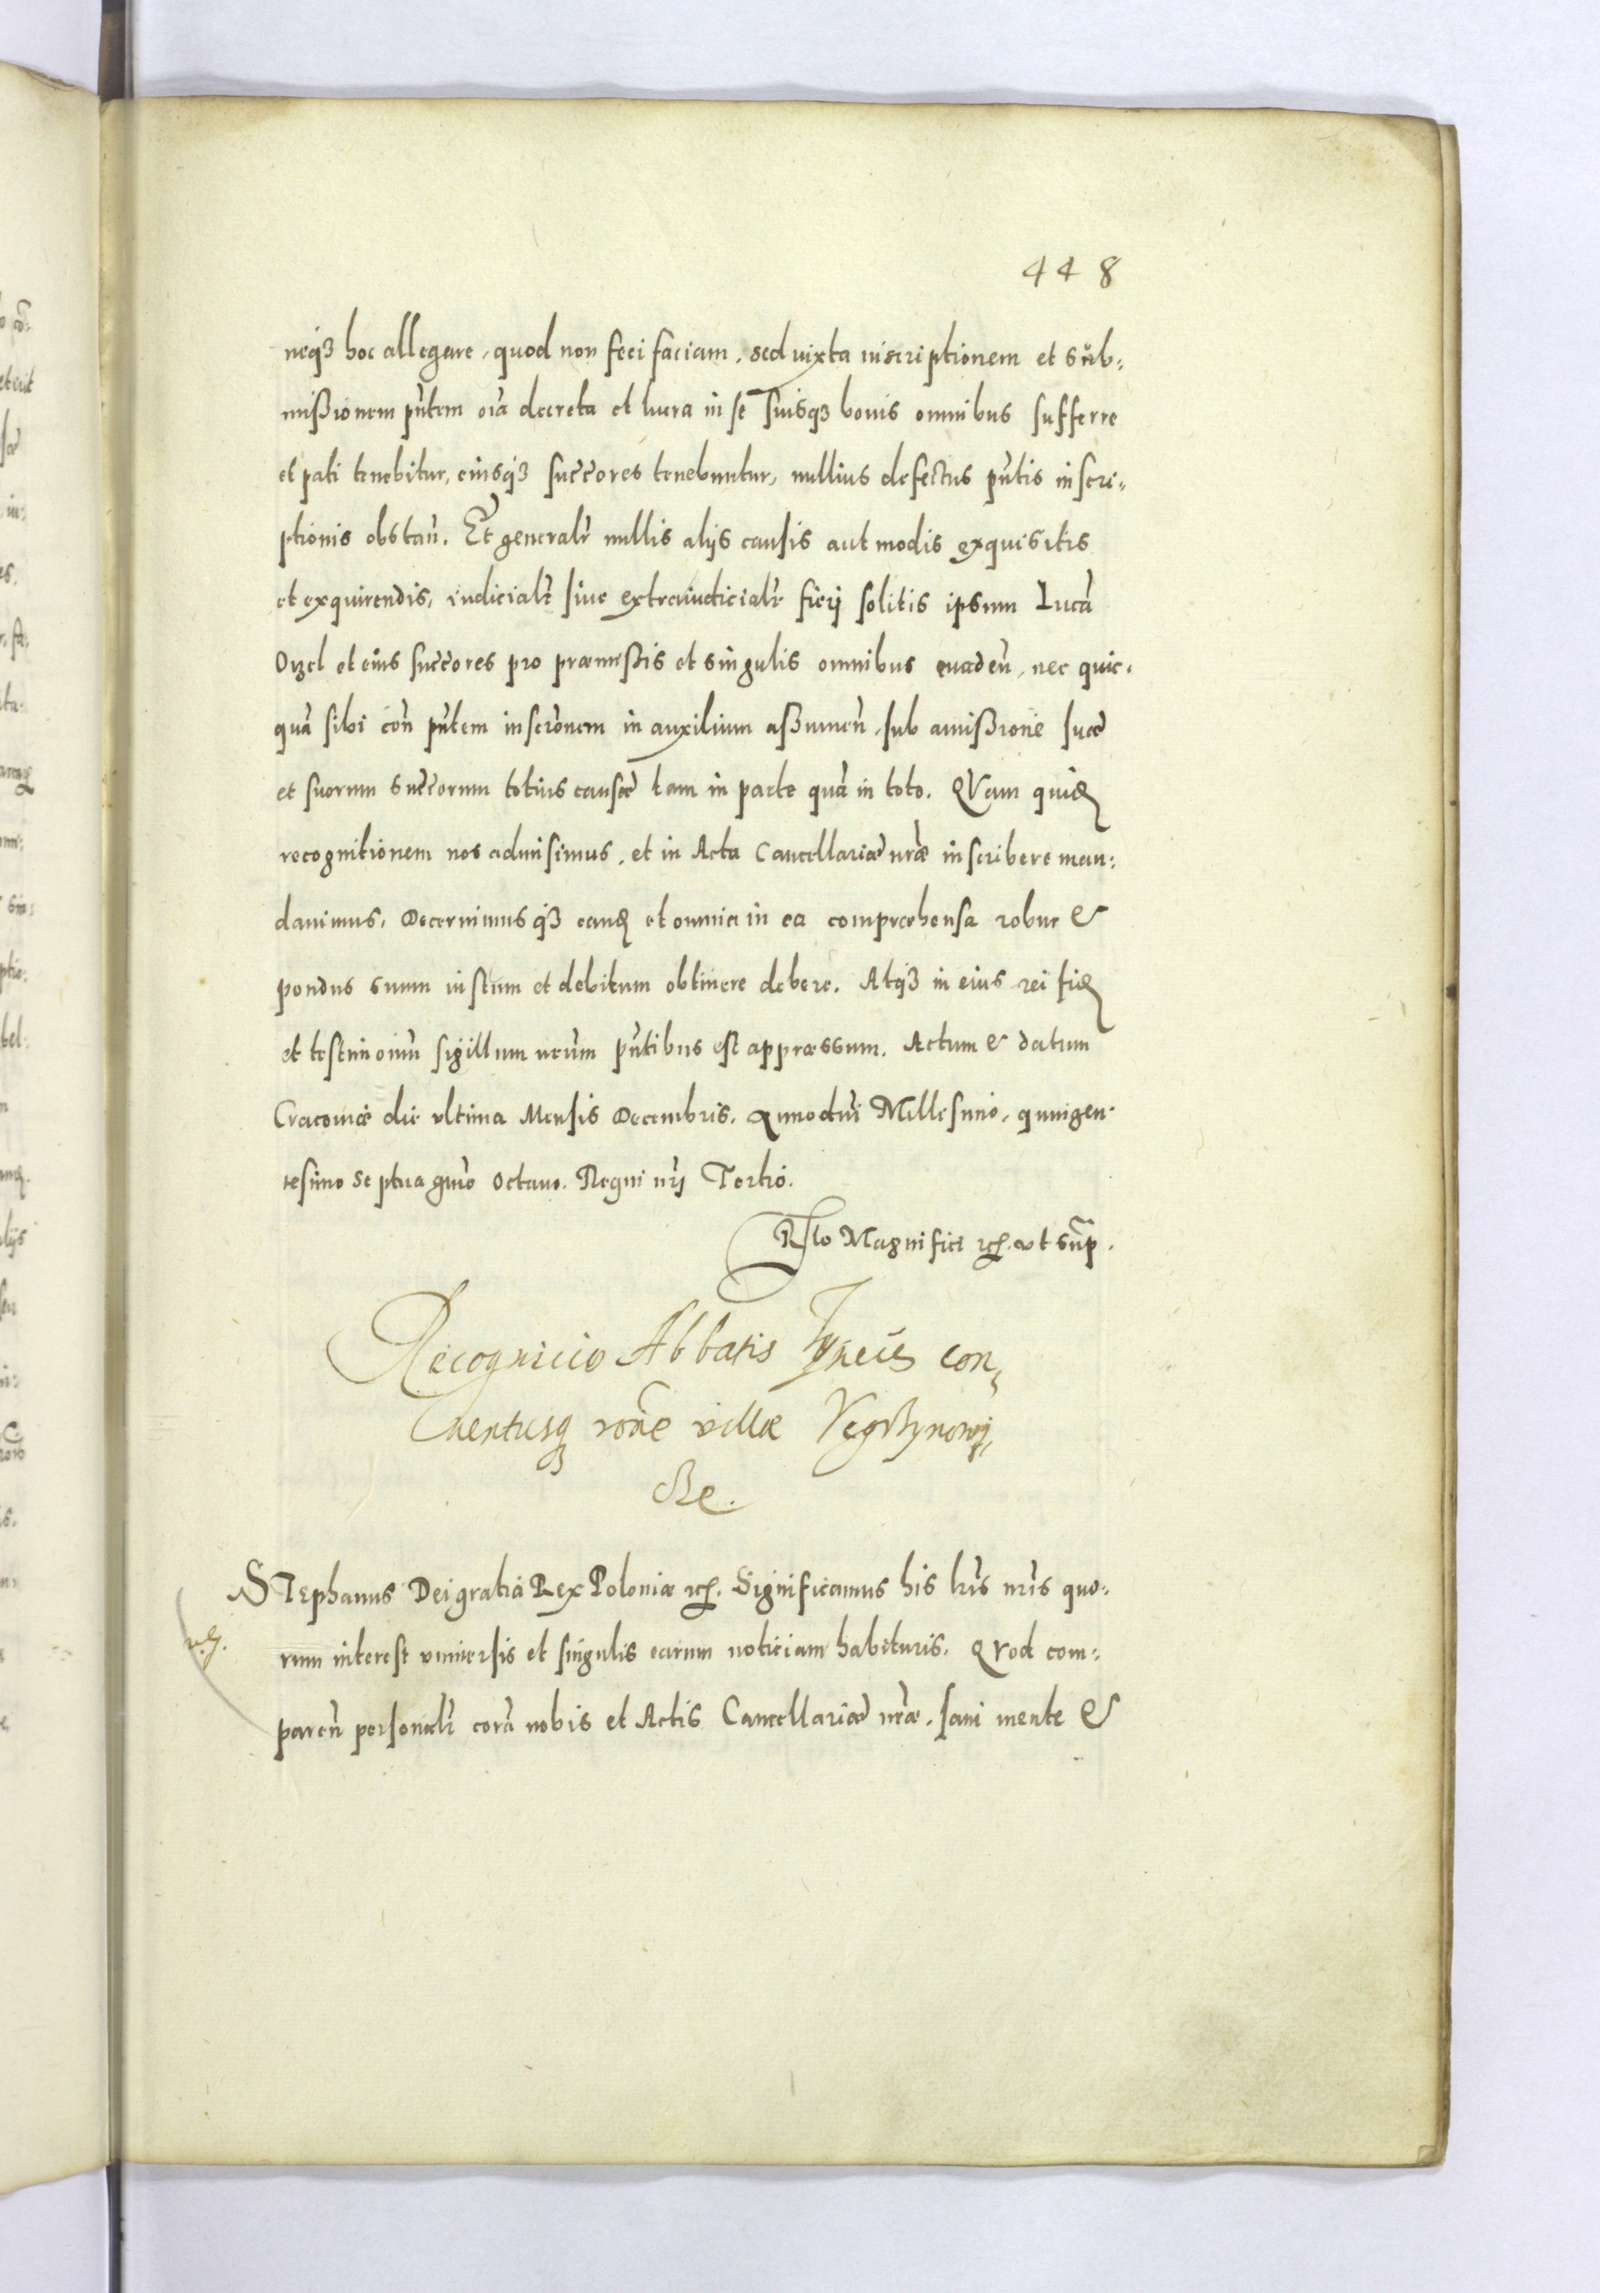 448
neq3 hoc allegare, quod non feci faciam, sed iuxta inscriptionem et sub-
missionem pñtem oïa decreta et lucra in se suisq3 bonis omnibus sufferre
et pati tenebitur, eiusq3 succores tenebuntur, nullius defectus pñtis inscri-
ptionis obstañ. Et generalr nullis alijs causis aut modis exquisitis
et exquirendis, iudicialr siue extraiudicialr fieri solitis ipsum Lucã
Orzel et eius succores pro præmissis et singulis omnibus euadeñ, nec quic-
quã sibi coñ pñtem inscrõnem in auxilium assumeñ, sub amissione suæ
et suorum succorum totius causæ tam in parte quã in toto. QVam quid
recognitionem nos admisimus, et in Acta Cancellariæ nræ inscribere man-
dauimus, Decernimusq3 eand et omnia in ea compræhensa robur &
pondus suum iustum et debitum obtinere debere. Atq3 in eius rei fid
et testimoniũ sigillum nrũm pñtibus est appræssum. Actum & datum
Cracouiæ die vltima Mensis Decembris. Anno dñi Millesimo, quingen-
tesimo septuagmo octauo. Regni nrj Tertio.
Rlo Magnifici etc. vt sup.
Recognicio Abbatis Tynecis con-
uentusq rõne villæ
STephanus Dei gratia Rex Poloniæ etc. Significamus his lrĩs nrĩs quo-
rum interest vniuersis et singulis earum noticiam habituris. QVod com-
pareñ personalr corã nobis et Actis Cancellariæ nræ, sani mente &